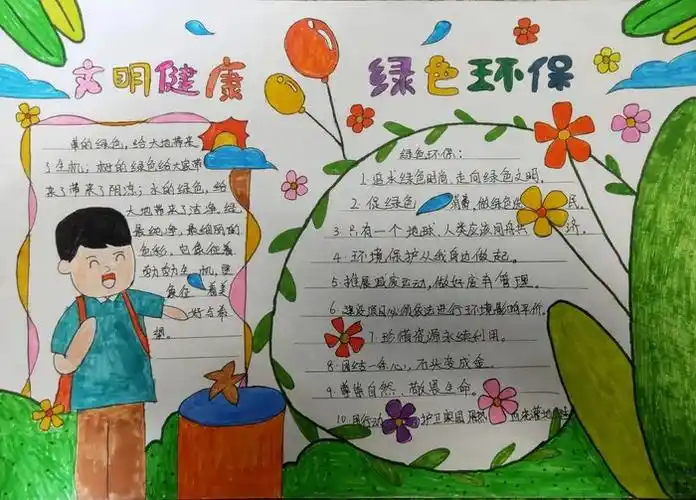 文明健康 绿色环保
草的绿色，给大地带来
了生机；树的绿色给大家带
来了带来了阴凉；水的绿色，给
大地带来了洁净。绿
最纯净，最细腻的
色彩，它象征着
勃勃生机，更
象征 着美
好与希
望。
绿色环保：
1.追求绿色时尚，走向绿色文明。
2.促绿色 消费，做绿色 民。
3.只有一个地球，人类应该同舟共 济。
4.环境保护从我身边做起。
5.推展 运动，做好废弃管理。
6.建设项目必须依法进行环境影响评价。
7.珍惜资源永续利用。
8.团结一条心，石头变成金。
9.尊崇自然、敬畏生命。
10.用行动 护卫家园